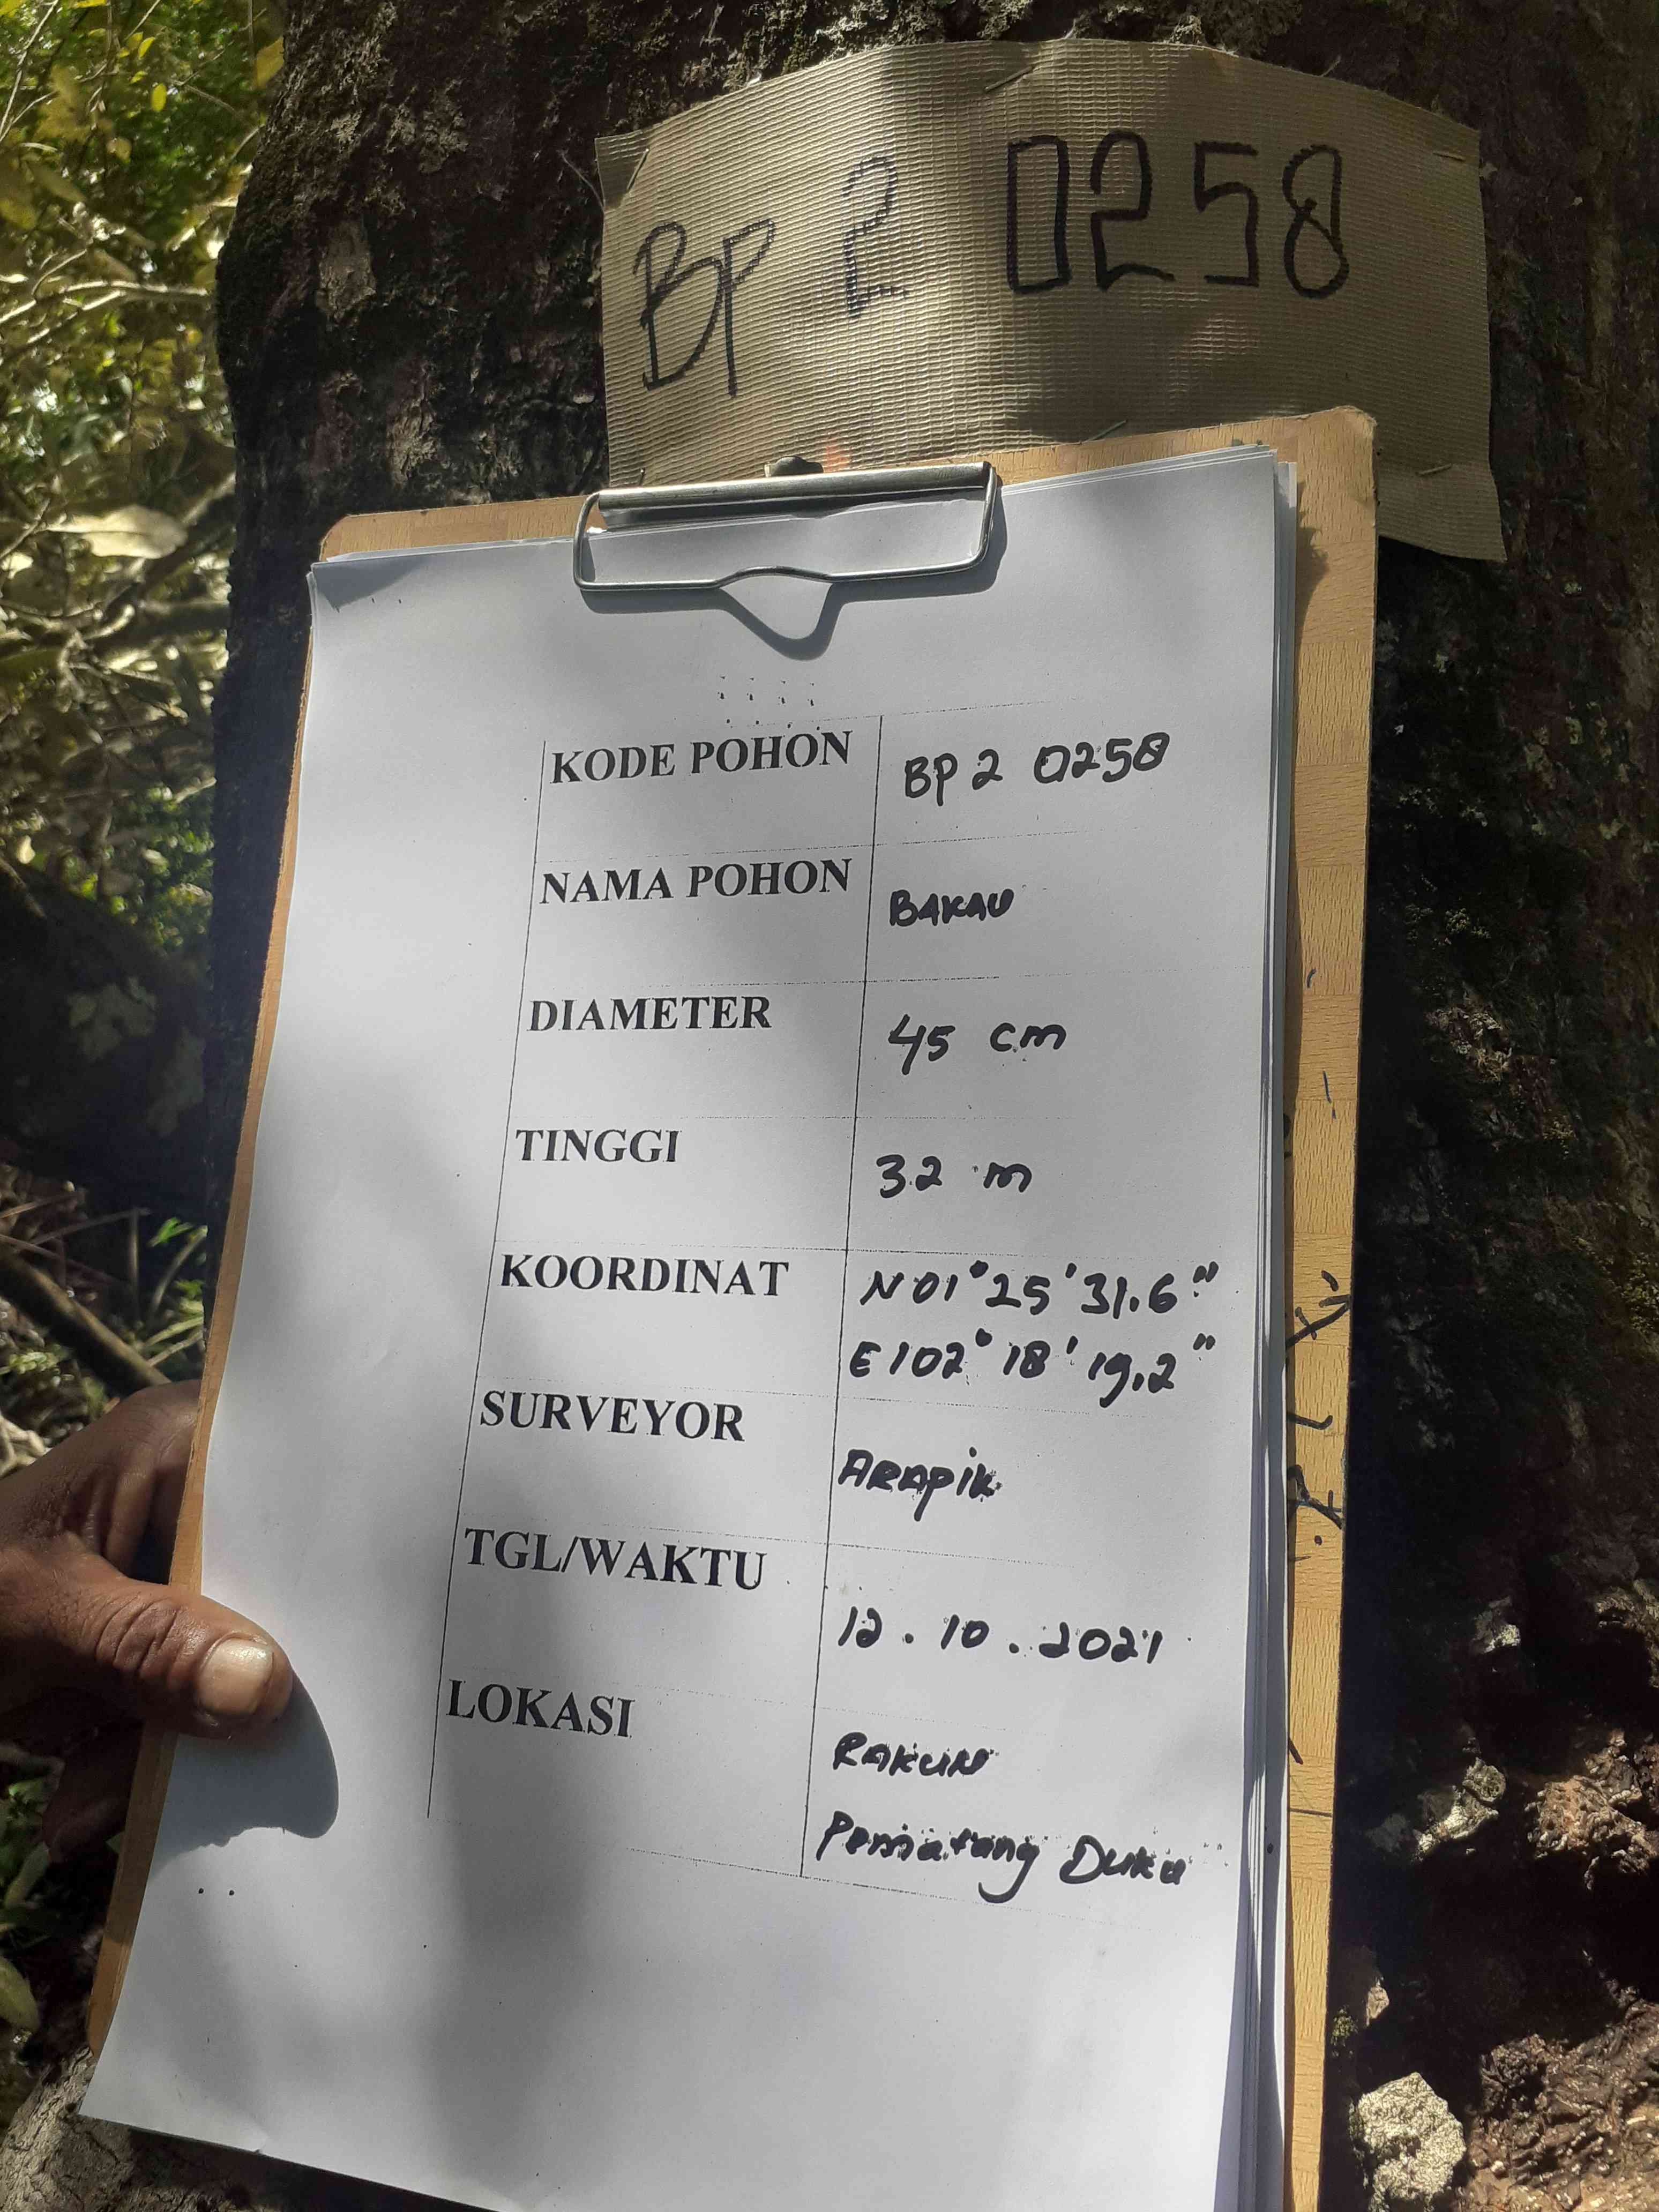 BP 2 0258
KODE POHON BP 2 0258
NAMA POHON BAKAU
DIAMETER 45 cm
TINGGI 32 m
KOORDINAT N 01° 25' 31.6"
E 102° 18' 19.2"
SURVEYOR ARAPIK
TGL/WAKTU 12.10.2021
LOKASI RAKUN
Pematang Duku